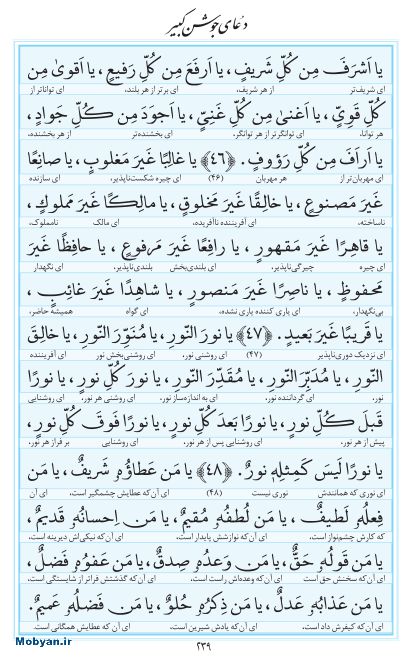 دعای جوشن کبیر
یا اَشرَفَ مِن کُلِّ شَریفٍ، یا اَرفَعَ مِن کُلِّ رَفیعٍ، یا اَقویٰ مِن
ای شریف‌تر از هر شریف، ای برتر از هر بلند، ای تواناتر از
کُلِّ قَوِیٍّ، یا اَغنیٰ مِن کُلِّ غَنِیٍّ، یا اَجوَدَ مِن کُلِّ جَوادٍ،
هر توانا، ای توانگرتر از هر توانگر، ای بخشنده‌تر از هر بخشنده،
یا اَراَفَ مِن کُلِّ رَؤوفٍ. ﴿٤٦﴾ یا غالِبًا غَیرَ مَغلوبٍ، یا صانِعًا
ای مهربان‌تر از هر مهربان (۴۶) ای چیره شکست‌ناپذیر، ای سازنده
غَیرَ مَصنوعٍ، یا خالِقًا غَیرَ مَخلوقٍ، یا مالِکًا غَیرَ مَملوكٍ،
ناساخته، ای آفریننده ناآفریده، ای مالک نامملوک،
یا قاهِرًا غَیرَ مَقهورٍ، یا رافِعًا غَیرَ مَرفوعٍ، یا حافِظًا غَیرَ
ای چیره چیرگی‌ناپذیر، ای بلندی‌بخش بلندی‌ناپذیر، ای نگهدار
مَحفوظٍ، یا ناصِرًا غَیرَ مَنصورٍ، یا شاهِدًا غَیرَ غائِبٍ،
بی‌نگهدار، ای یاری کننده یاری نشده، ای گواه همیشه حاضر،
یا قَریبًا غَیرَ بَعیدٍ. ﴿٤٧﴾ یا نورَ النّورِ، یا مُنَوِّرَ النّورِ، یا خالِقَ
ای نزدیک دوری‌ناپذیر (۴۷) ای روشنی نور، ای روشنی‌بخش نور ای آفریننده
النّورِ، یا مُدَبِّرَ النّورِ، یا مُقَدِّرَ النّورِ، یا نورَ کُلِّ نورٍ، یا نورًا
نور، ای گرداننده نور، ای به اندازه‌ساز نور، ای روشنی هر نور، ای روشنایی
قَبلَ کُلِّ نورٍ، یا نورًا بَعدَ کُلِّ نورٍ، یا نورًا فَوقَ کُلِّ نورٍ،
پیش از هر نور، ای روشنایی پس از هر نور، ای روشنایی بر فراز هر نور،
یا نورًا لَیسَ کَمِثلِهٖ نورٌ. ﴿٤٨﴾ یا مَن عَطاؤُهٗ شَریفٌ، یا مَن
ای نوری که همانندش نوری نیست (۴۸) ای آن‌که عطایش چشمگیر است، ای آن
فِعلُهٗ لَطیفٌ، یا مَن لُطفُهٗ مُقیمٌ، یا مَن اِحسانُهٗ قَدیمٌ،
که کارش چشم‌نواز است، ای آن‌که نوازشش پایدار است، ای آن‌که نیکی‌اش دیرینه است،
یا مَن قَولُهٗ حَقٌّ، یا مَن وَعدُهٗ صِدقٌ، یا مَن عَفوُهٗ فَضلٌ،
ای آن‌که سخنش حق است ای آن‌که وعده‌اش راست است، ای آن‌که گذشتش فراتر از شایستگی است،
یا مَن عَذابُهٗ عَدلٌ، یا مَن ذِکرُهٗ حُلوٌ، یا مَن فَضلُهٗ عَمیمٌ.
ای آن‌که کیفرش داد است، ای آن‌که یادش شیرین است، ای آن‌که عطایش همگانی است.
۲۳۹
Mobyan.ir